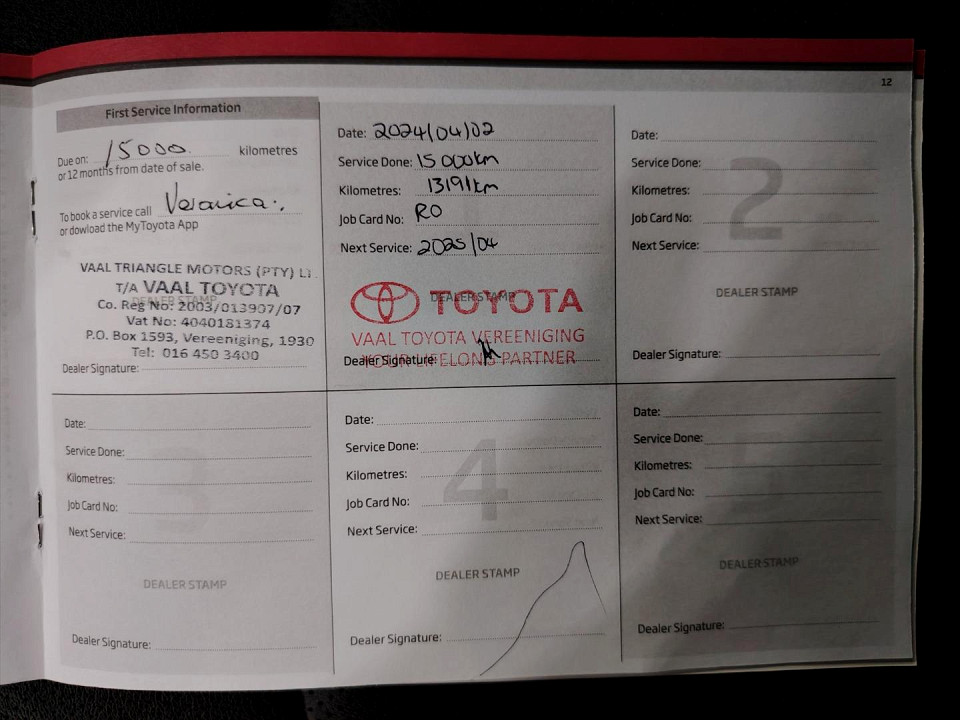 12
First Service Information
Due on: 15000 kilometres
or 12 months from date of sale.
To book a service call Veronica.
or dowload the MyToyota App
VAAL TRIANGLE MOTORS (PTY) LT
T/A VAAL TOYOTA
DEALER STAMP
Co. Reg No: 2003/013907/07
Vat No: 4040181374
P.O. Box 1593, Vereeniging, 1930
Tel: 016 450 3400
Dealer Signature:
Date: 2024/04/02
Service Done: 15 000km
Kilometres: 13191km
Job Card No: RO
Next Service: 2025/04
DEALER STAMP
TOYOTA
VAAL TOYOTA VEREENIGING
YOUR LIFELONG PARTNER
Dealer Signature:
2
Date:
Service Done:
Kilometres:
Job Card No:
Next Service:
DEALER STAMP
Dealer Signature:
3
Date:
Service Done:
Kilometres:
Job Card No:
Next Service:
DEALER STAMP
Dealer Signature:
4
Date:
Service Done:
Kilometres:
Job Card No:
Next Service:
DEALER STAMP
Dealer Signature:
5
Date:
Service Done:
Kilometres:
Job Card No:
Next Service:
DEALER STAMP
Dealer Signature: